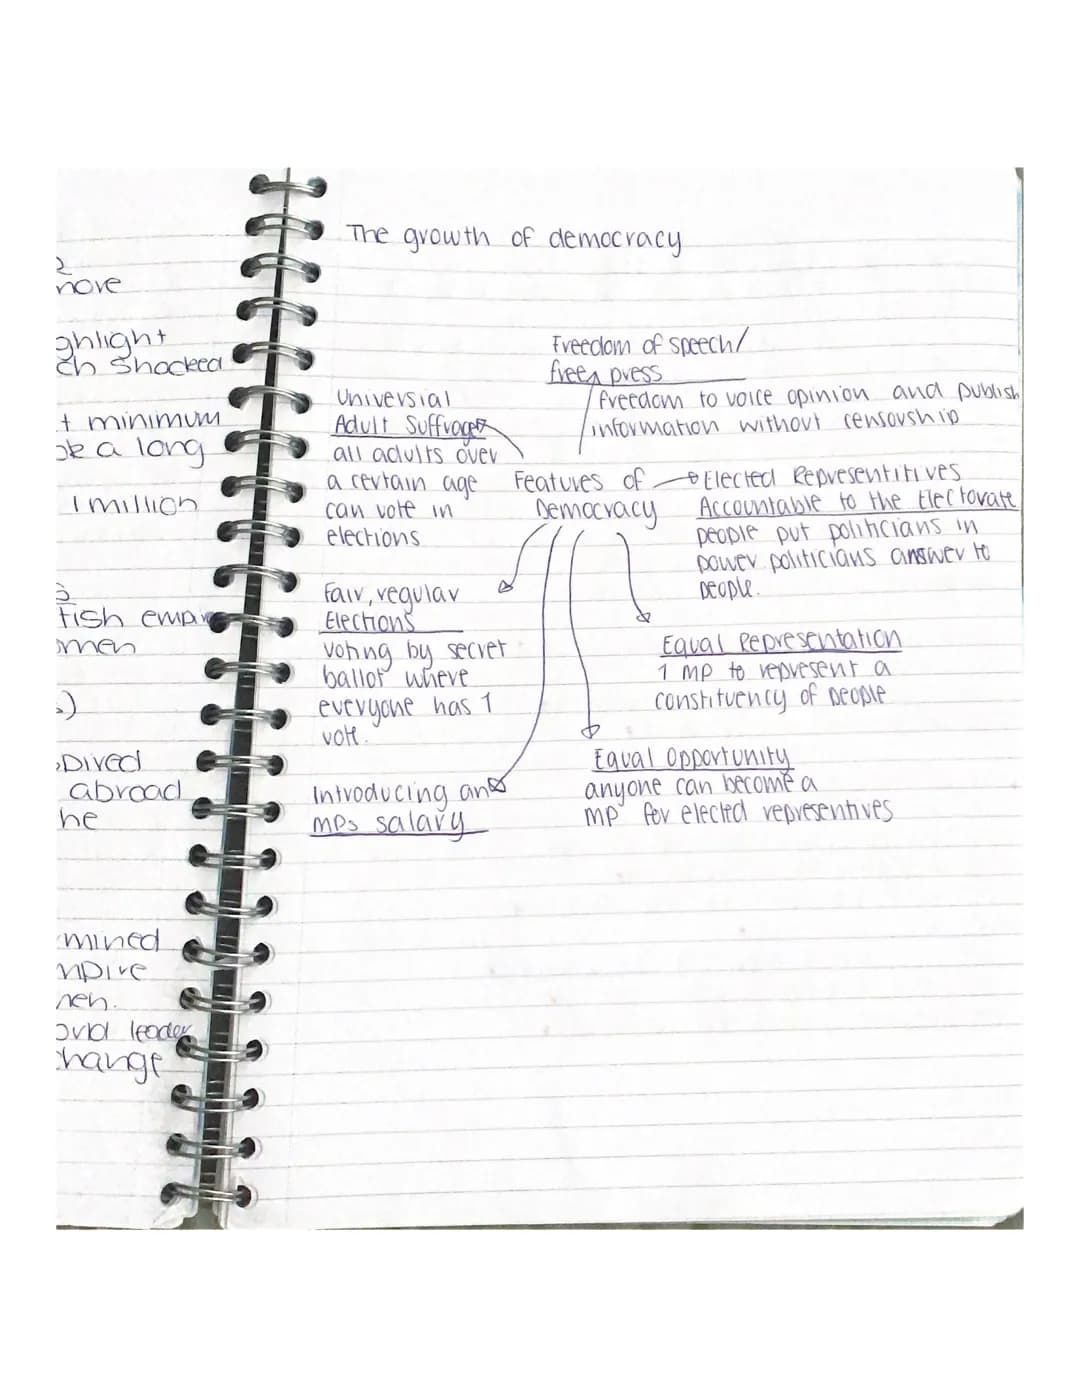 The growth of democracy
Freedom of speech/
free press
freedom to voice opinion and publish
information without censorship
Universial
Adult Suffrage
all adults over
a certain age
can vote in
elections
Features of
Democracy
Elected Representitives
Accountable to the Electorate
people put politicians in
power politicians answer to
people.
Fair, regular
Elections
voting by secret
ballot where
everyone has 1
vote.
Equal Representation
1 MP to represent a
constituency of people
Equal Opportunity
anyone can become a
MP for elected representives
Introducing an
MPs salary
more
ghlight
ch shocked
t minimum
a long
1 million
tish empire
omen
s)
abroad
he
mined
mpire
men.
leader
change